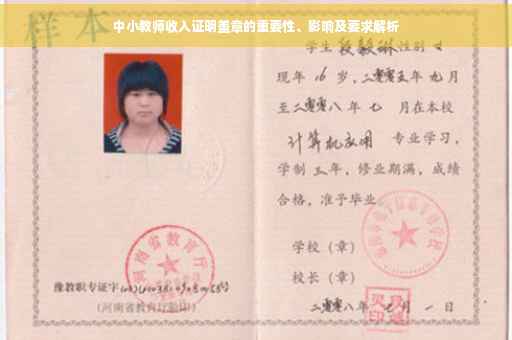 中小教师收入证明盖章的重要性、影响及要求解析
样本
学生 段毅琳 性别 女
现年 16 岁，二零零五年九月
至二零零八年七 月在本校
计算机应用 专业学习，
学制 三年，修业期满，成绩
合格，准予毕业。
学校（章）
校长（章）
二零零八年七月一日
河南省教育厅
豫教职专证字
（河南省教育厅验印）